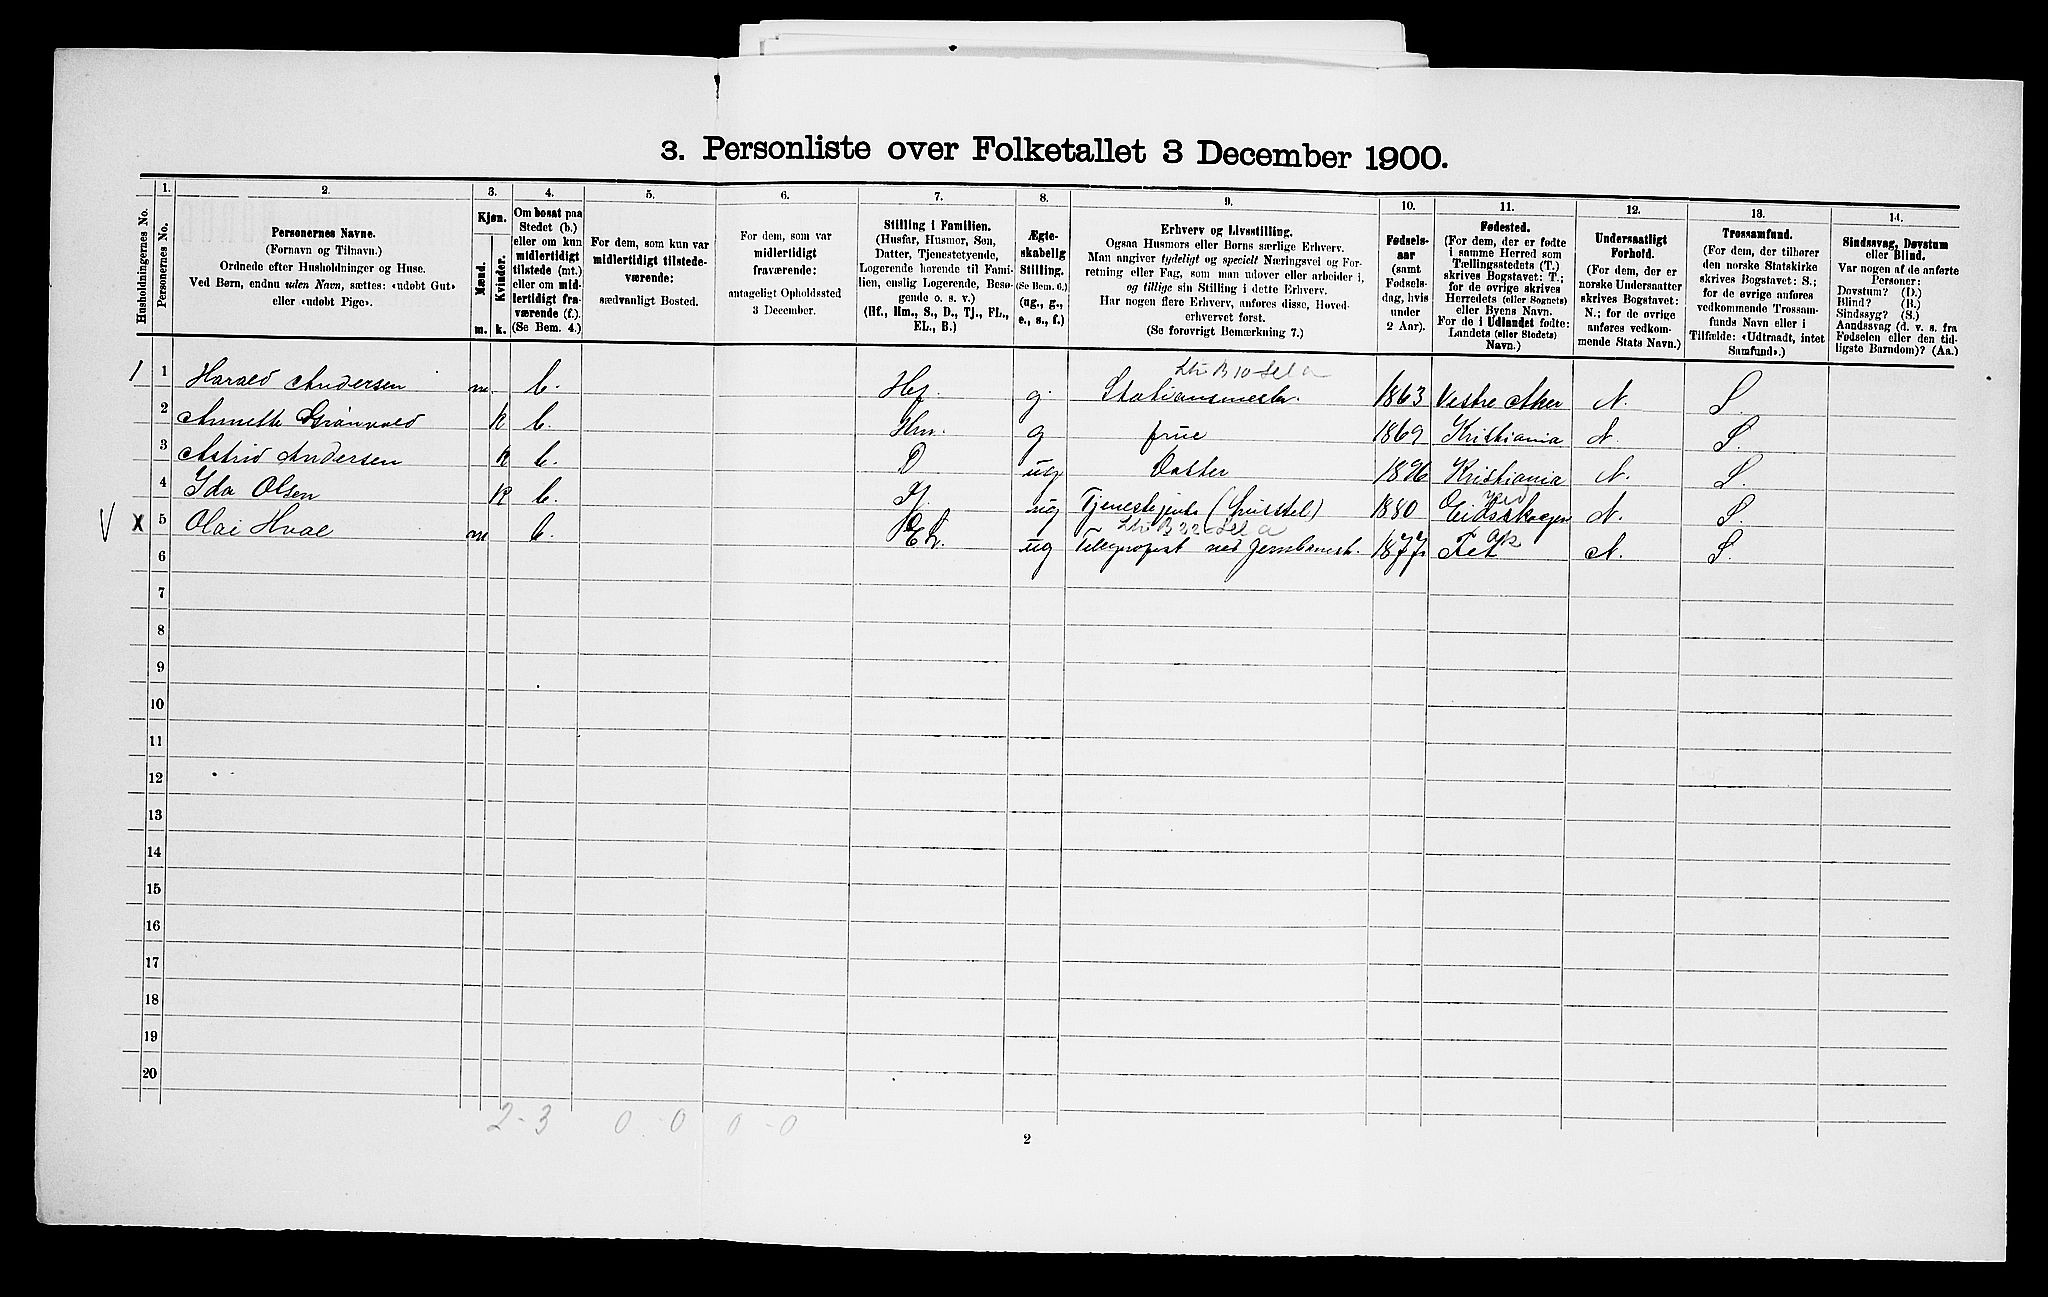 3. Personliste over Folketallet 3 December 1900.
Husholdningernes No.
1.
Personernes No.
2.
Personernes Navne.
(Fornavn og Tilnavn.)
Ordnede efter Husholdninger og Huse.
Ved Børn, endnu uden Navn, sættes: «udøbt Gut»
eller «udøbt Pige».
3.
Kjøn.
Mænd.
Kvinder.
m.
k.
4.
Om bosat paa
Stedet (b.)
eller om kun
midlertidigt
tilstede (mt.)
eller om mid-
lertidigt fra-
værende (f.).
(Se Bem. 4.)
5.
For dem, som kun var
midlertidigt tilstede-
værende:
sædvanligt Bosted.
6.
For dem, som var
midlertidigt
fraværende:
antageligt Opholdssted
3 December.
7.
Stilling i Familien.
(Husfar, Husmor, Søn,
Datter, Tjenestetyende,
Logerende hørende til Fami-
lien, enslig Logerende, Besø-
gende o. s. v.)
(Hf., Hm., S., D., Tj., FL.,
EL., B.)
8.
Ægte-
skabelig
Stilling.
(Se Bem. 6.)
(ug., g.,
e., s., f.)
9.
Erhverv og Livsstilling.
Ogsaa Husmors eller Børns særlige Erhverv.
Man angiver tydeligt og specielt Næringsvei og For-
retning eller Fag, som man udøver eller arbeider i,
og tillige sin Stilling i dette Erhverv.
Har nogen flere Erhverv, anføres disse, Hoved-
erhvervet først.
(Se forøvrigt Bemærkning 7.)
10.
Fødsels-
aar
(samt
Fødsels-
dag, hvis
under
2 Aar).
11.
Fødested.
(For dem, der er fødte
i samme Herred som
Tællingsstedets (T.)
skrives Bogstavet: T.;
for de øvrige skrives
Herredets (eller Sognets)
eller Byens Navn.
For de i Udlandet fødte:
Landets (eller Stedets)
Navn.)
12.
Undersaatligt
Forhold.
(For dem, der er
norske Undersaatter
skrives Bogstavet:
N.; for de øvrige
anføres vedkom-
mende Stats Navn.)
13.
Trossamfund.
(For dem, der tilhører
den norske Statskirke
skrives Bogstavet: S.;
for de øvrige anføres
vedkommende Trossam-
funds Navn eller i
Tilfælde: «Udtraadt, intet
Samfund».)
14.
Sindssvag, Døvstum
eller Blind.
Var nogen af de anførte
Personer:
Døvstum? (D.)
Blind? (B.)
Sindssyg? (S.)
Aandssvag (d. v. s. fra
Fødselen eller den tid-
ligste Barndom)? (Aa.)
1 1 Harald Andersen m. b. Hf. g. Stationsmester. 1863 Vestre Aker N. S.
2 Annette Grønvold k b. Hm. g frue 1869 Kristiania N. S.
3 Astrid Andersen k b. D ug Datter 1896 Kristiania N. S.
4 Ida Olsen k b. Tj. ug Tjenestepige (husstel) 1880 Eidsskogen N. S.
V x 5 Olai Hval m b. EL. ug Telegrafist ved Jernbanest. 1877 Fet N. S.
6
7
8
9
10
11
12
13
14
15
16
17
18
19
20
2 - 3 0 - 0 0 - 0
2